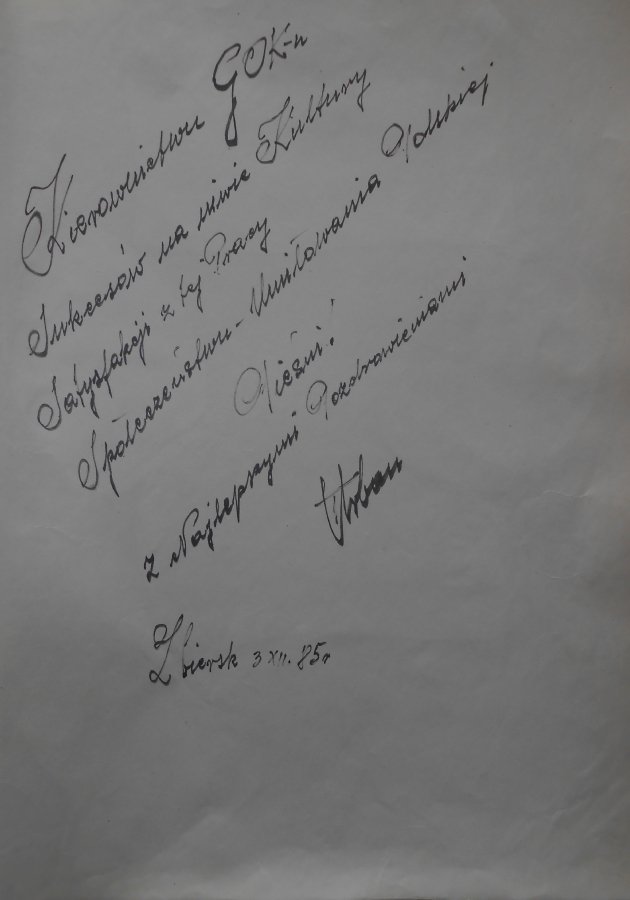 Kierownictwu GOK-u
Sukcesów na niwie Kultury
Satysfakcji z tej Pracy
Społeczeństwu - Umiłowania Polskiej
Pieśni!
z Najlepszymi Pozdrowieniami
Urban
Zbiersk 3 XII. 85r